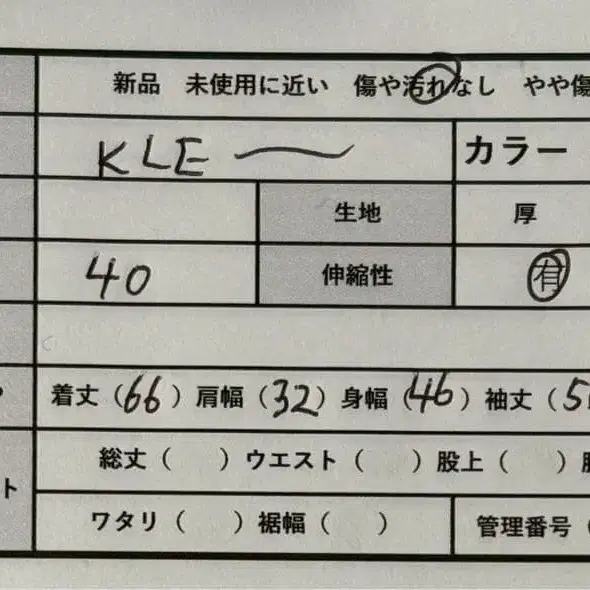 新品 未使用に近い 傷や汚れなし やや傷
KLE〜 カラー
生地 厚
40 伸縮性 有
着丈（66）肩幅（32）身幅（46）袖丈（5
総丈（ ）ウエスト（ ）股上（ ）
ト
ワタリ（ ）裾幅（ ） 管理番号（